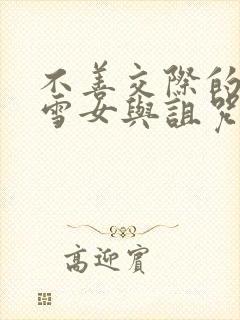 不善交際的
雪女與詛咒
高迎賓